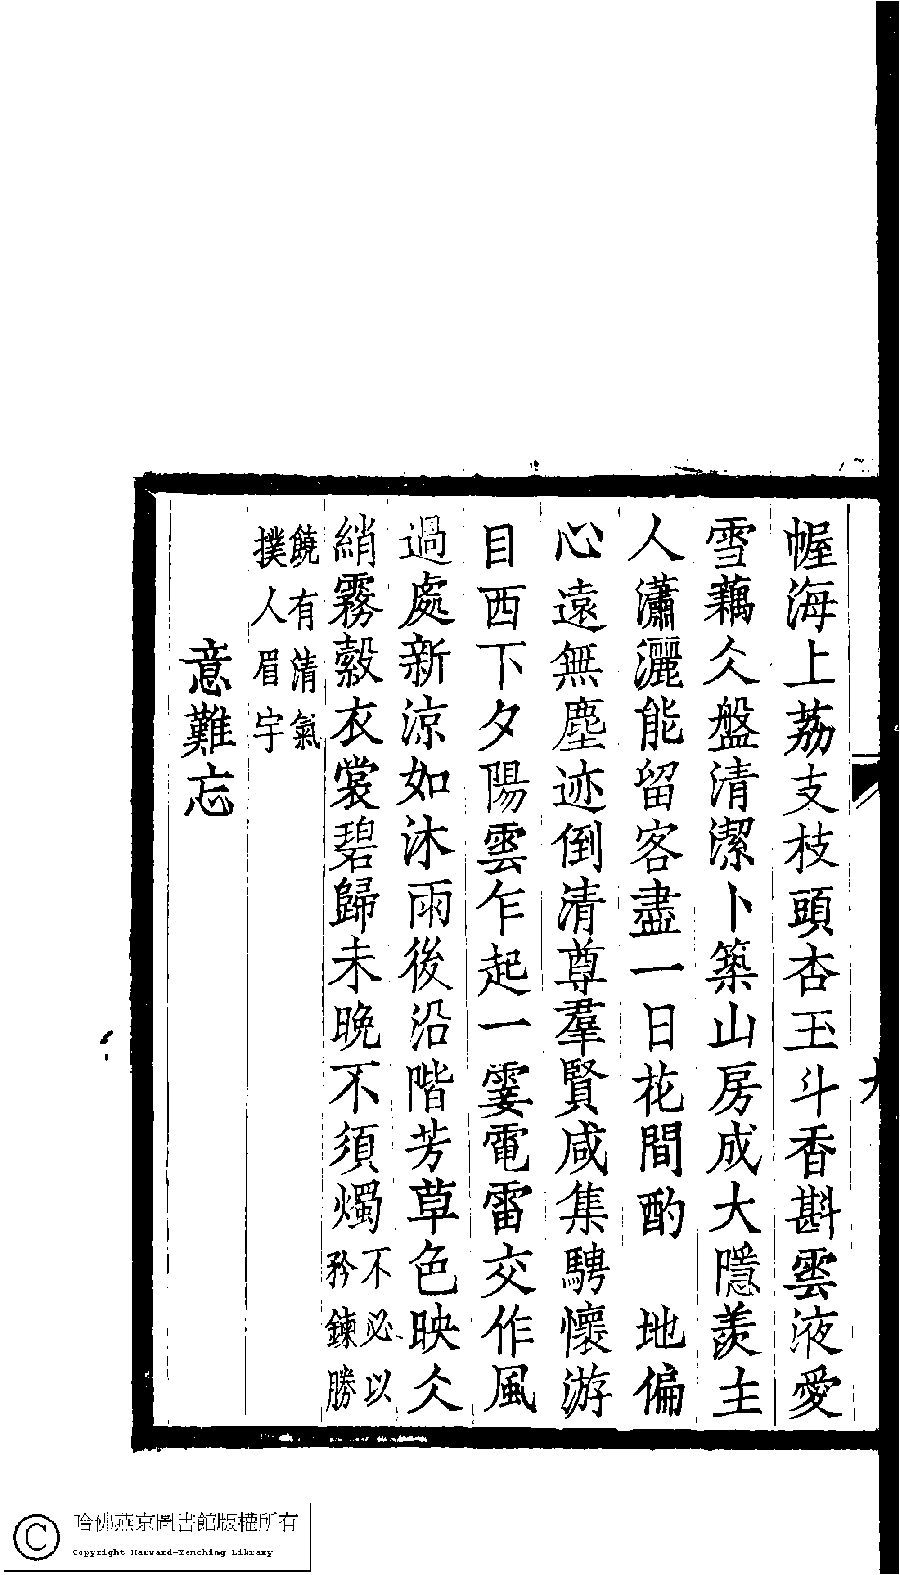 幄海上荔支枝頭杏玉斗香斟雲液愛
雪藕仌盤清潔卜築山房成大隱羨主
人瀟灑能留客盡一日花間酌　地偏
心遠無塵迹倒清尊羣賢咸集騁懷游
目西下夕陽雲乍起一霎電雷交作風
過處新涼如沐雨後沿階芳草色映仌
綃霧縠衣裳碧歸未晚不須燭不必以
矜鍊勝
饒有清氣
撲人眉宇
意難忘
哈佛燕京圖書館版權所有
Copyright Harvard-Yenching Library